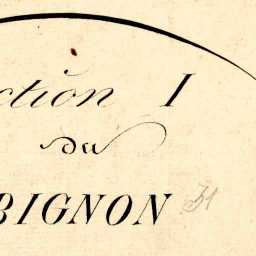 ction I
du
BIGNON 31